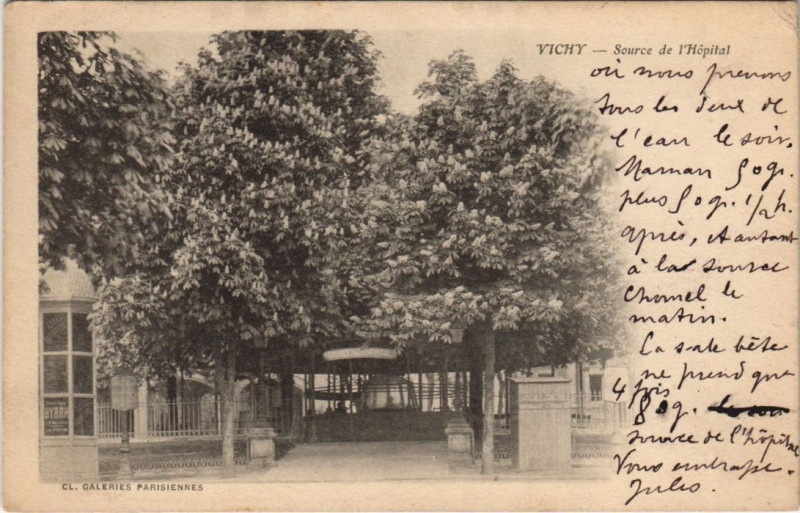 VICHY — Source de l'Hôpital
où nous prenons
tous les deux de
l'eau le soir.
Maman 80gr.
plus 80gr. 1/2 h.
après, et autant
à la source
Chomel le
matin.
La sale bête
ne prend que
4 fois
80g.
source de l'hôpital
Vous embrasse.
Jules.
BYRRH
CL. GALERIES PARISIENNES